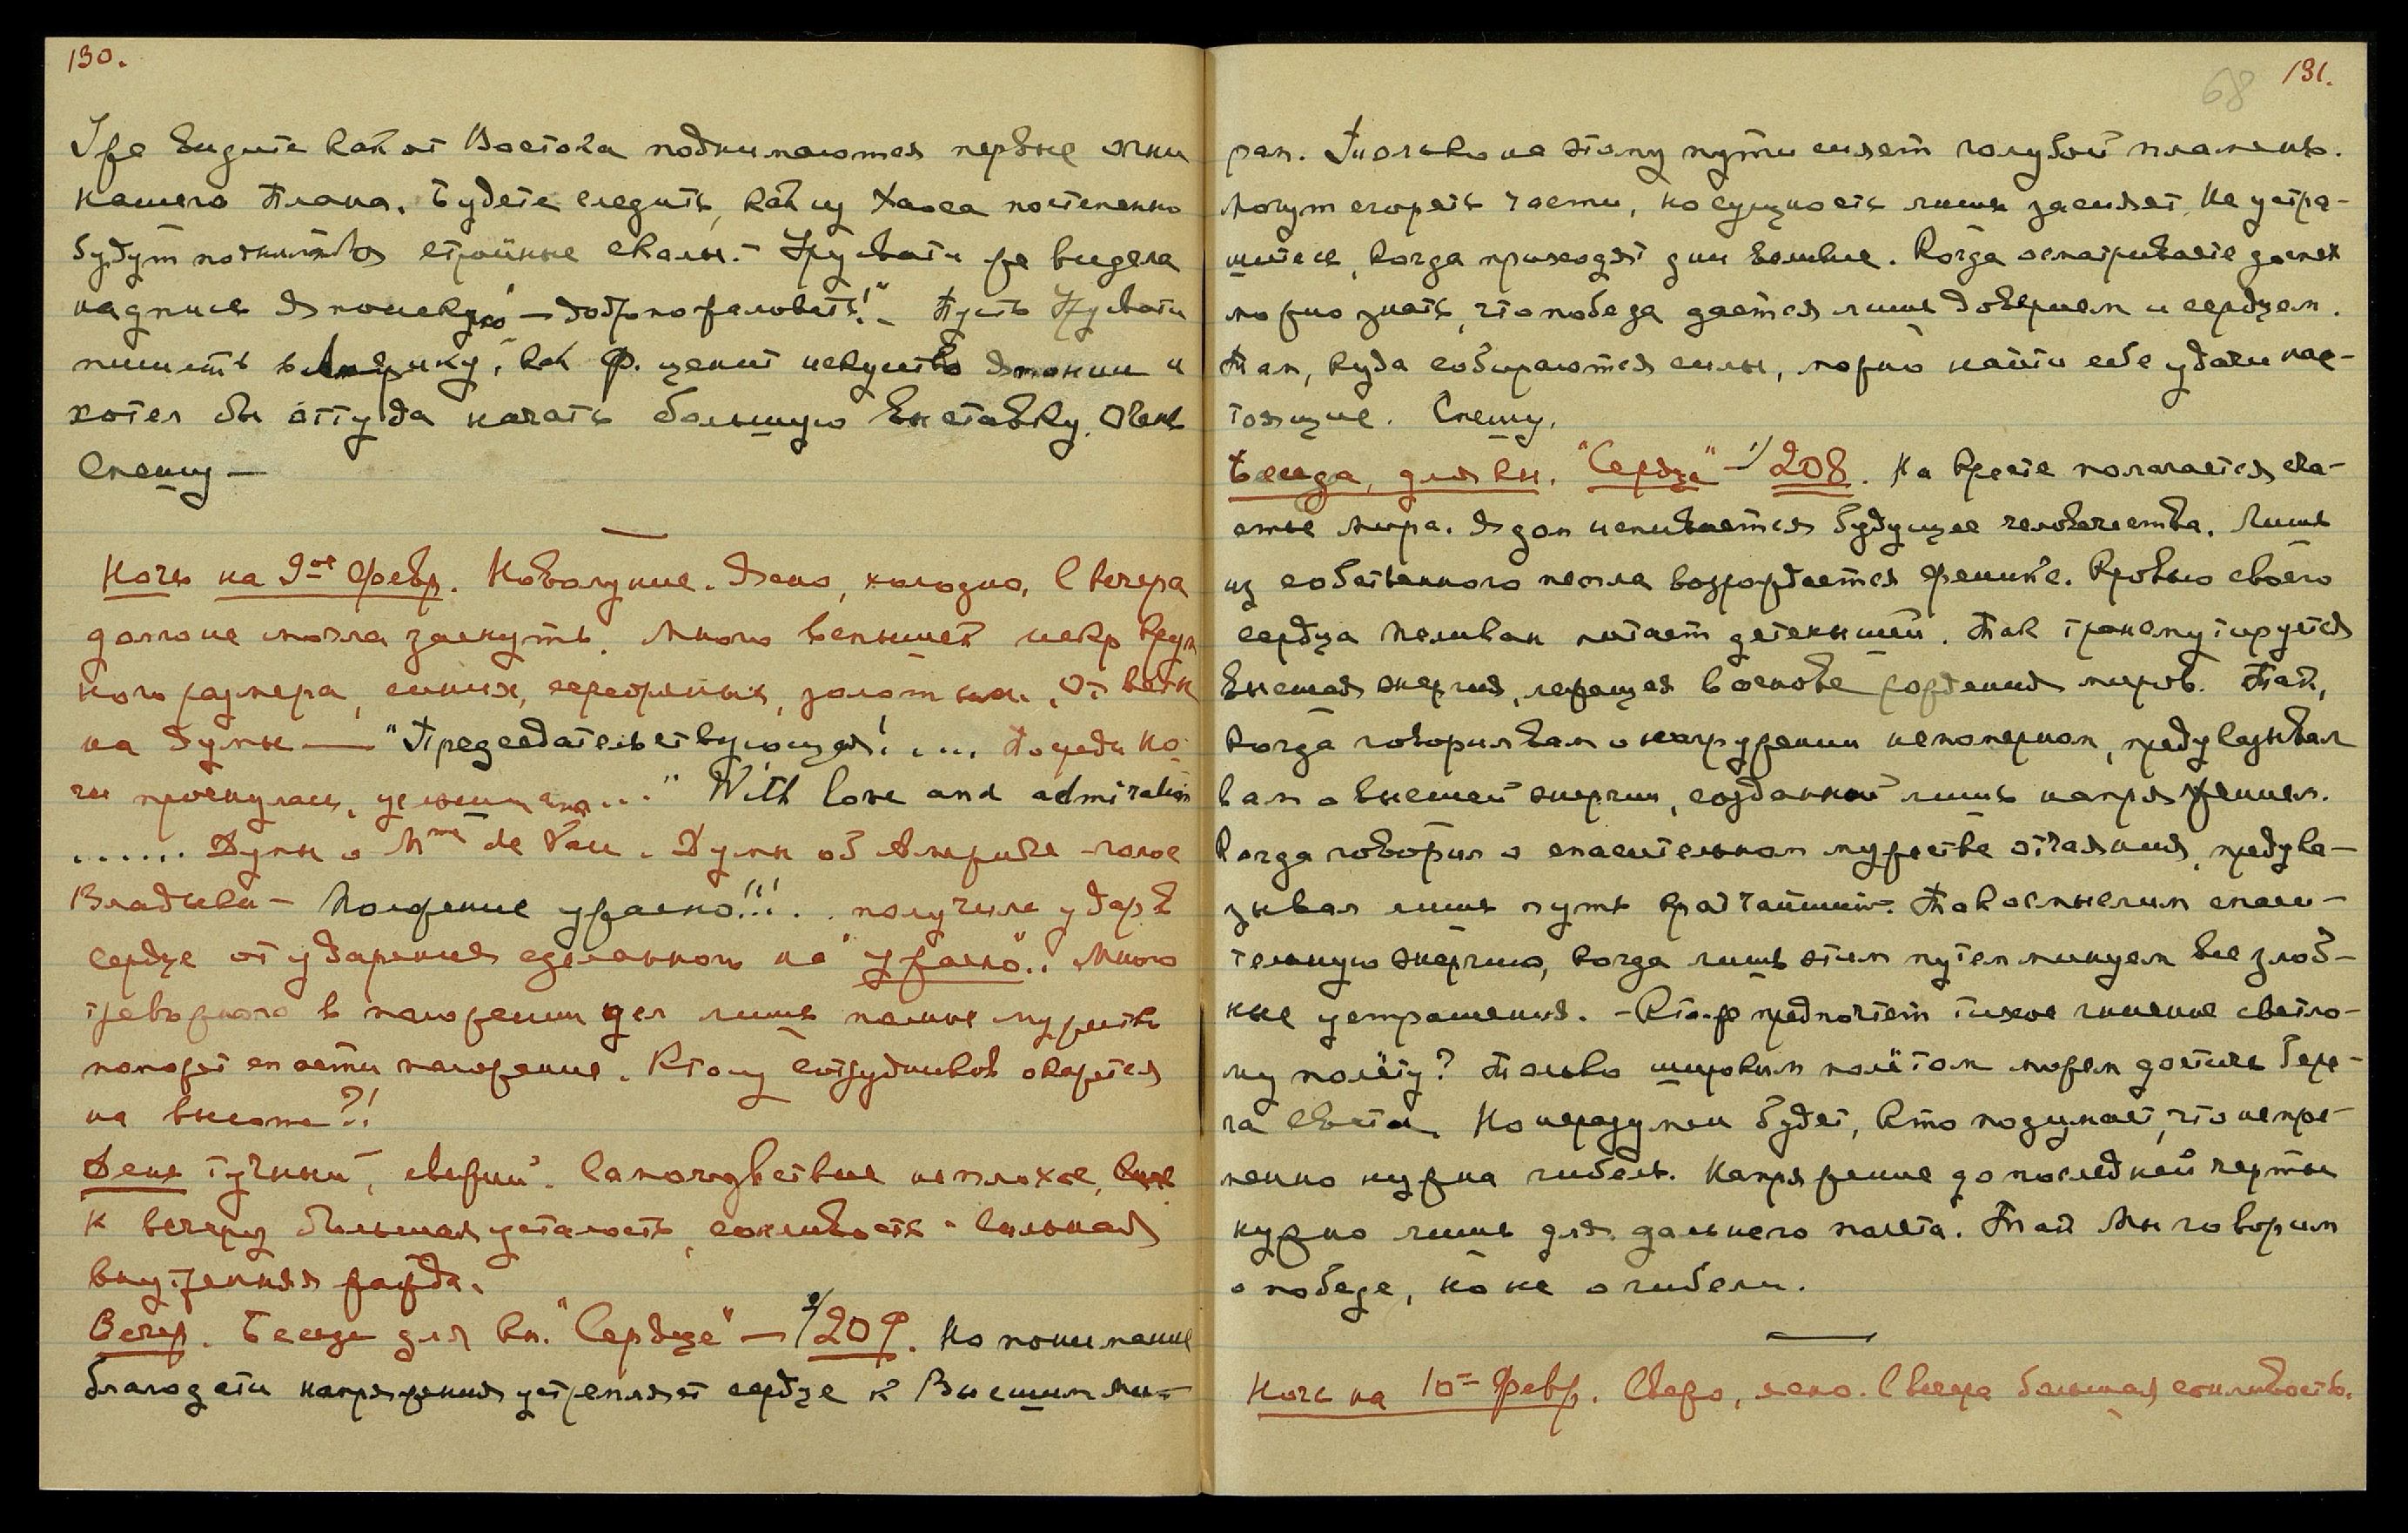 130.
Уже видите как от Востока поднимаются первые огни
нашего Плана. Будете следить, как из Хаоса постепенно
будут подниматься стройные скалы. – Урусвати уже видела
надпись Японскую – "добро пожаловать!" – Пусть Урусвати
пишет в Америку, как Ф. ценит искусство Японии и
хотел бы оттуда начать большую выставку. Очень
Спешу —
Ночь на 9ое Февр. Новолуние. Ясно, холодно, с вечера
долго не могла заснуть. Много вспышек искр круп
ного размера, синих, серебряных, золотых. От ветки
на думы — "Председательствующая!.... Посреди но-
чи проснулась, услышала..." With love and admiration
...... Думы о Mme de Vau. Думы об Америке – голос
Владыки – Положение ужасно!!!.. получила удар в
сердце от ударения сделанного на "ужасно".. Много
тревожного в положении дел лишь полное мужество
может спасти положение. Кто из сотрудников окажется
на высоте?!
День тучный, свежий. Самочувствие неплохое,
К вечеру большая усталость, сонливость. Сильная
внутренняя жажда.
Вечер. Беседа для кн. "Сердце" — 209. Но понимание
благодати напряжения устремляет сердце к Высшим Ми-
68 131.
рам. Только на этому пути сияет голубой пламень.
Могут сгореть части, но сущность лишь засияет. Не устра-
шитесь, когда приходят дни великие. Когда осматриваете доспех
можно знать, что победа дается лишь доверием и сердцем.
Там, куда собираются силы, можно найти себе удачи нас-
тоящие. Спешу.
Беседа, для кн. "Сердце" – 208. На кресте полагается спа-
сение Мира. Ядом испивается будущее человечества. Лишь
из собственного пепла возрождается феникс. Кровью своего
сердца Пеликан питает детенышей. Так трансмутируется
высшая энергия, лежащая в основе рождения миров. Так,
когда говорил вам о нагружении непомерном, предуказывал
вам о высшей энергии, созданной лишь напряжением.
Когда говорил о спасительном мужестве отчаяния, предука-
зывал лишь путь кратчайший. Так осмыслим спаси-
тельную энергию, когда лишь этим путем минуем все злоб-
ные устрашения. – Кто ж предпочтет тихое гниение светло-
му полёту? Только широким полётом можем достичь бере-
га Света. Но неразумен будет, кто подумает, что непре-
менно нужна гибель. Напряжение до последней черты
нужно лишь для дальнего полета. Так Мы говорим
о победе, но не о гибели.
Ночь на 10е Февр. Свежо, ясно. С вечера большая сонливость.